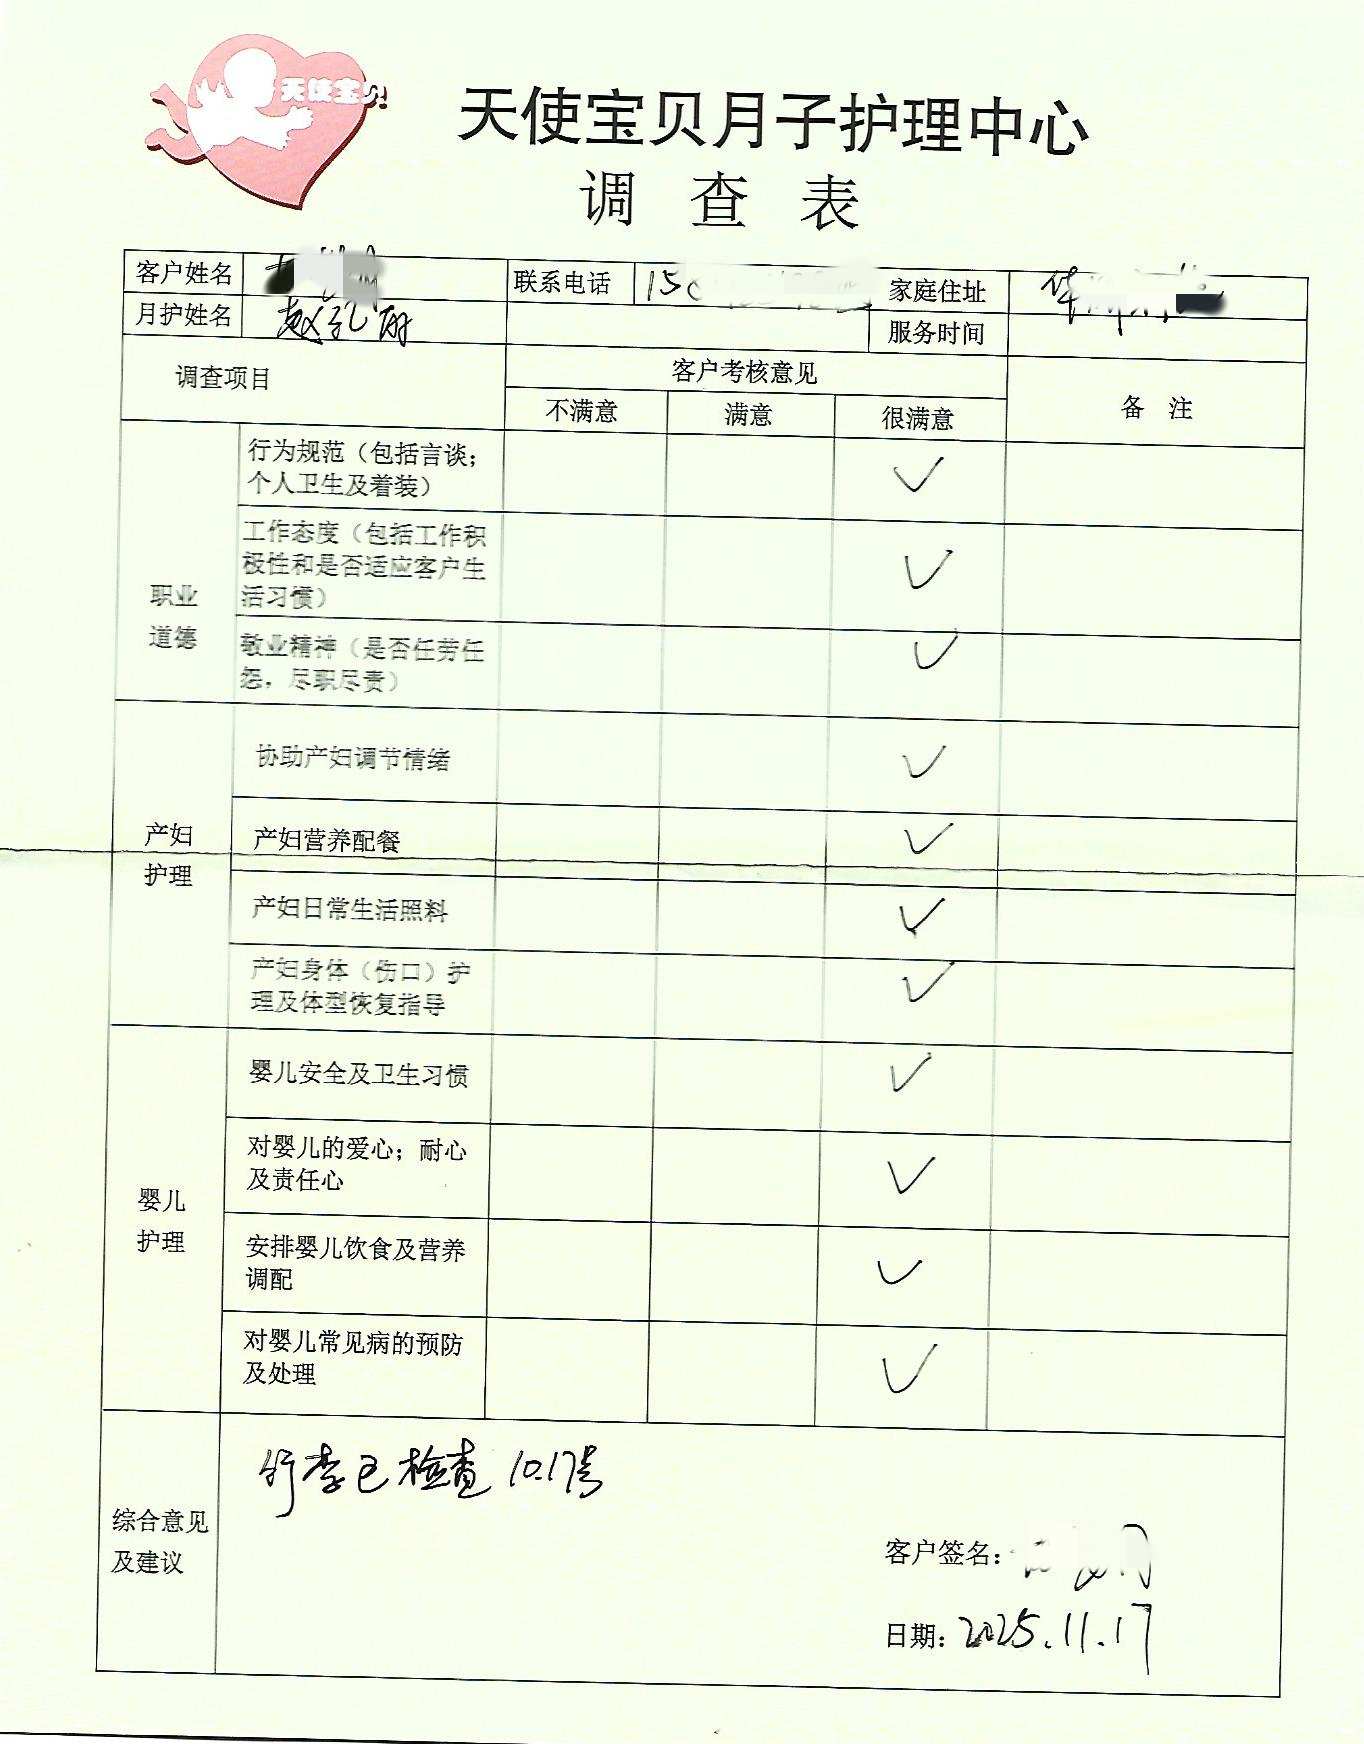 天使宝贝
天使宝贝月子护理中心
调 查 表
客户姓名 联系电话 15 家庭住址 华
月护姓名 赵 服务时间
调查项目 客户考核意见 备 注
不满意 满意 很满意
职业
道德
行为规范（包括言谈；
个人卫生及着装） ✓
工作态度（包括工作积
极性和是否适应客户生
活习惯） ✓
敬业精神（是否任劳任
怨，尽职尽责） ✓
产妇
护理
协助产妇调节情绪 ✓
产妇营养配餐 ✓
产妇日常生活照料 ✓
产妇身体（伤口）护
理及体型恢复指导 ✓
婴儿
护理
婴儿安全及卫生习惯 ✓
对婴儿的爱心；耐心
及责任心 ✓
安排婴儿饮食及营养
调配 ✓
对婴儿常见病的预防
及处理 ✓
综合意见
及建议
行李已检查 10.17号
客户签名：
日期：2025.11.17